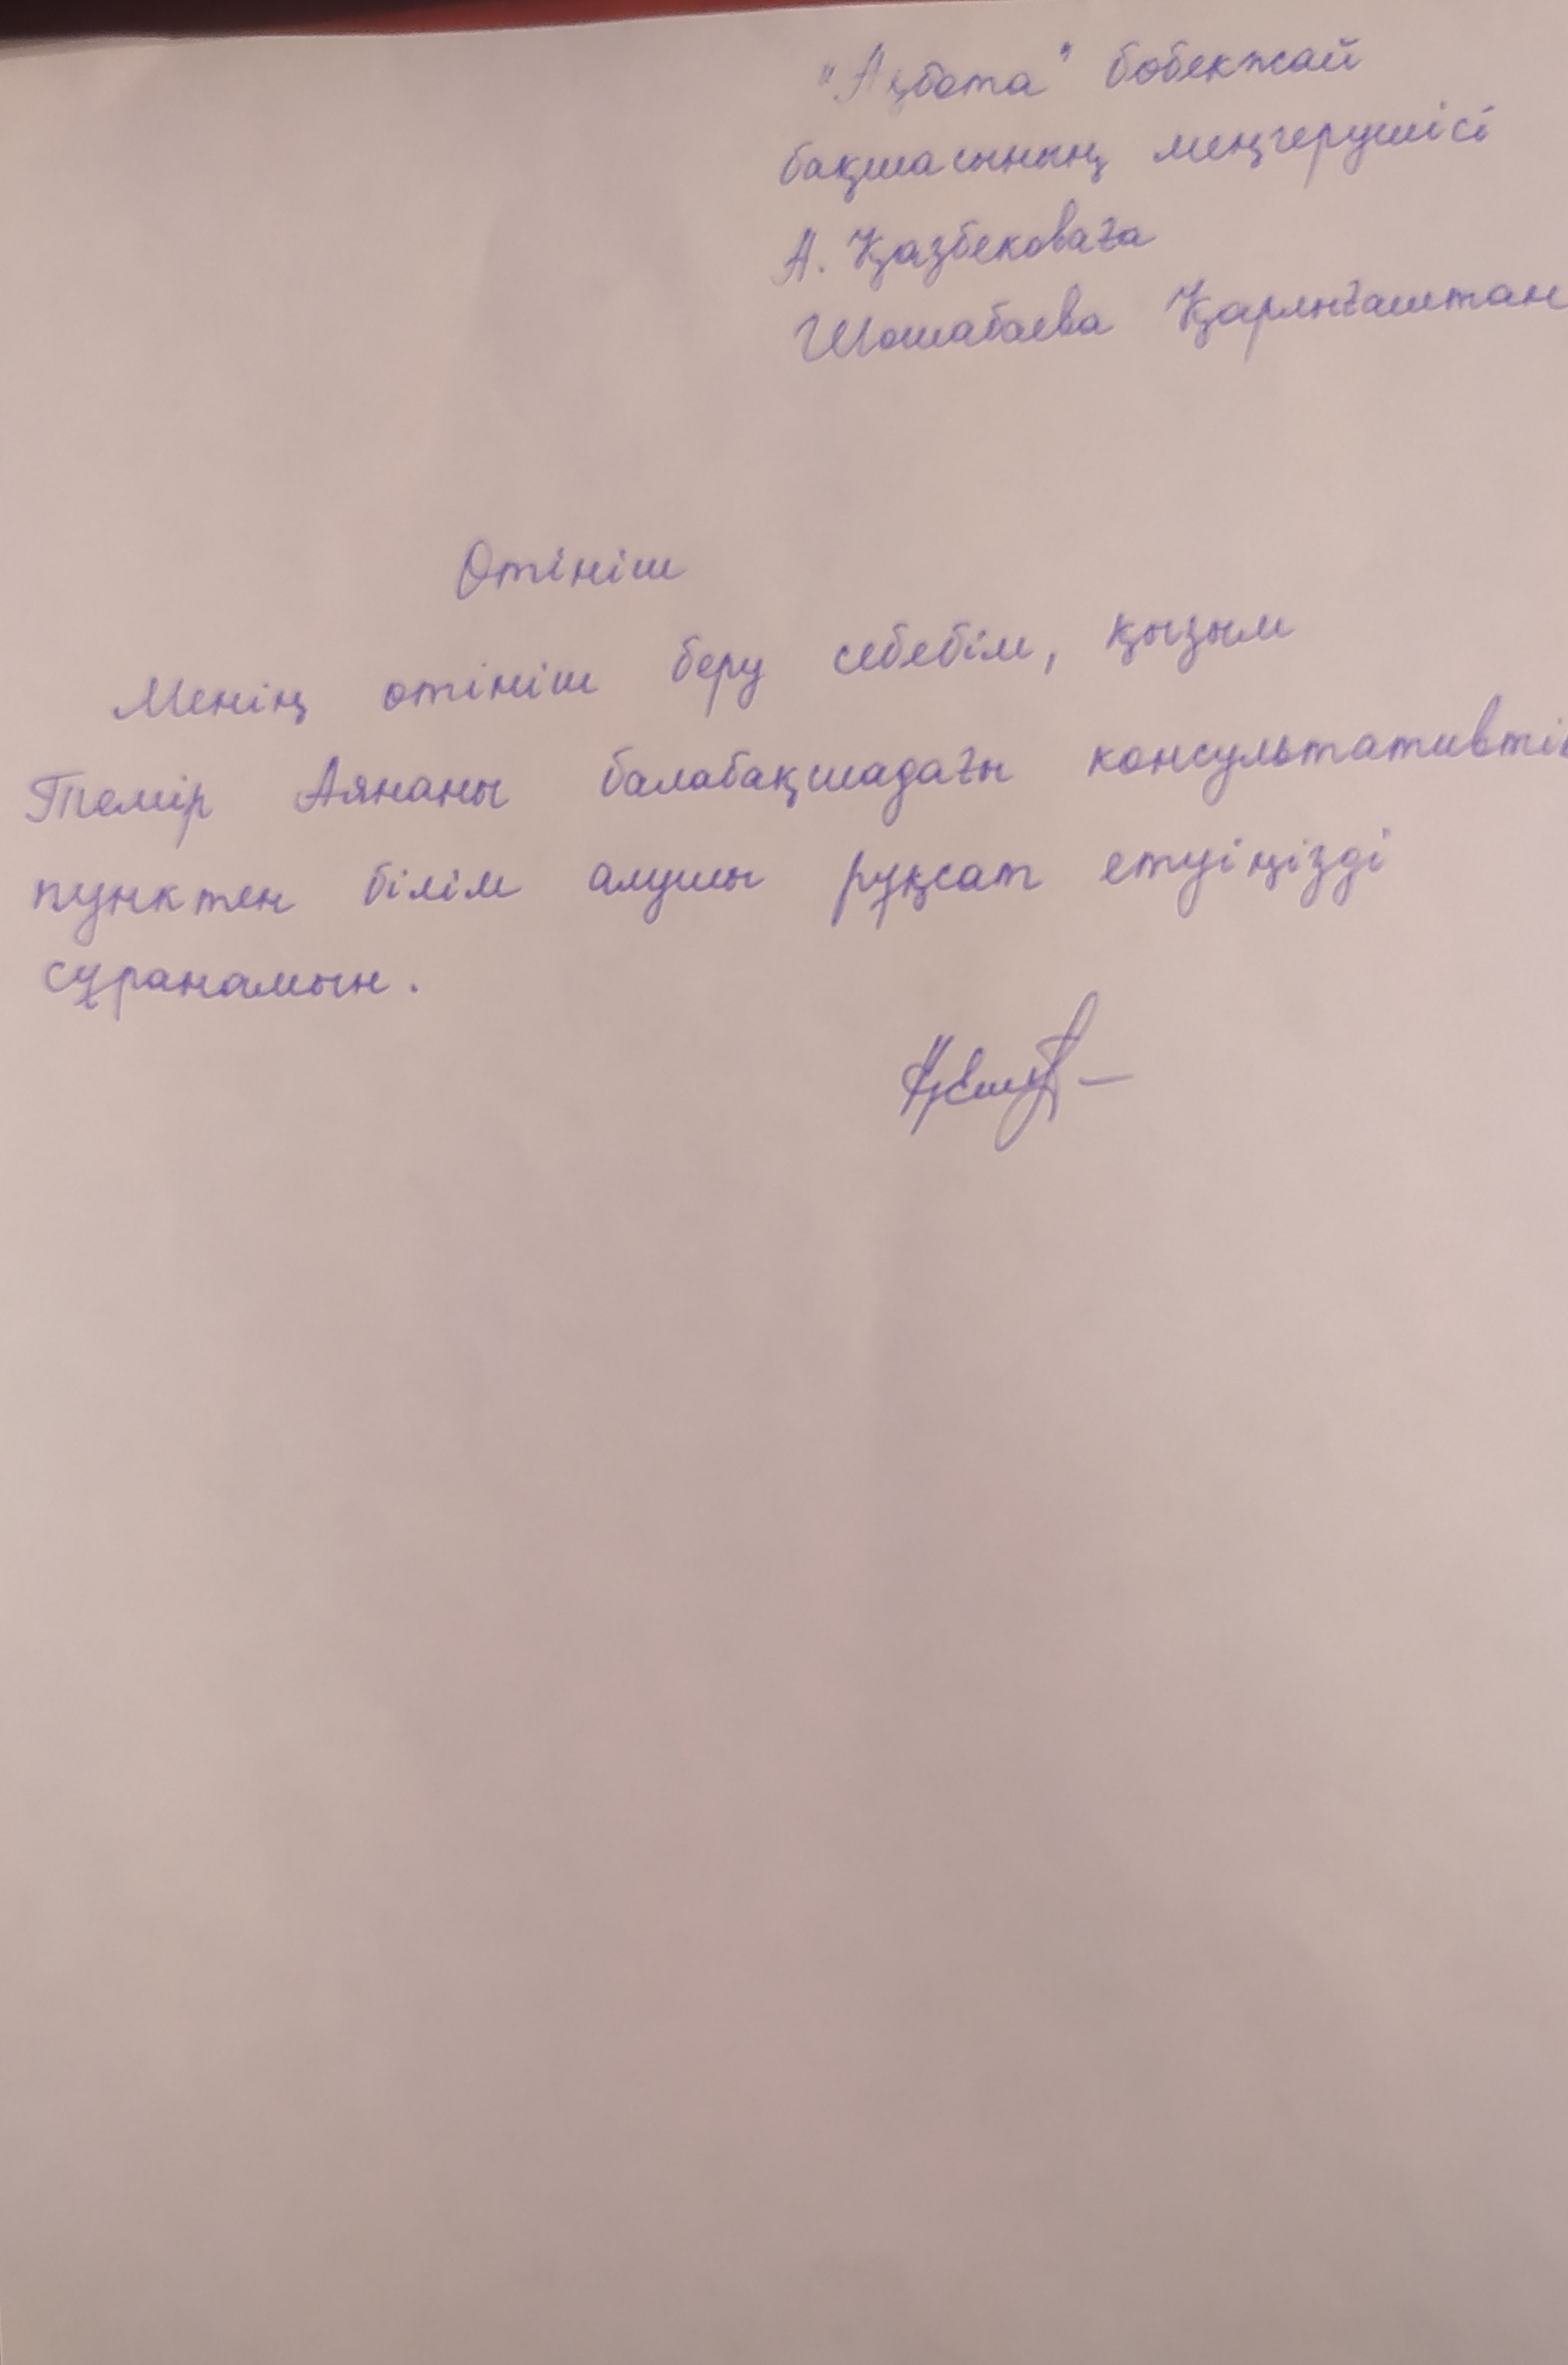 "Ақбота" бөбекжай
бақшасының меңгерушісі
А. Қазбековаға
Шошабаева Қарлығаштан
Өтініш
Менің өтініш беру себебім, қызым
Темір Аянаны балабақшадағы консультативтік
пунктен білім алушы рұқсат етуіңізді
сұранамын.